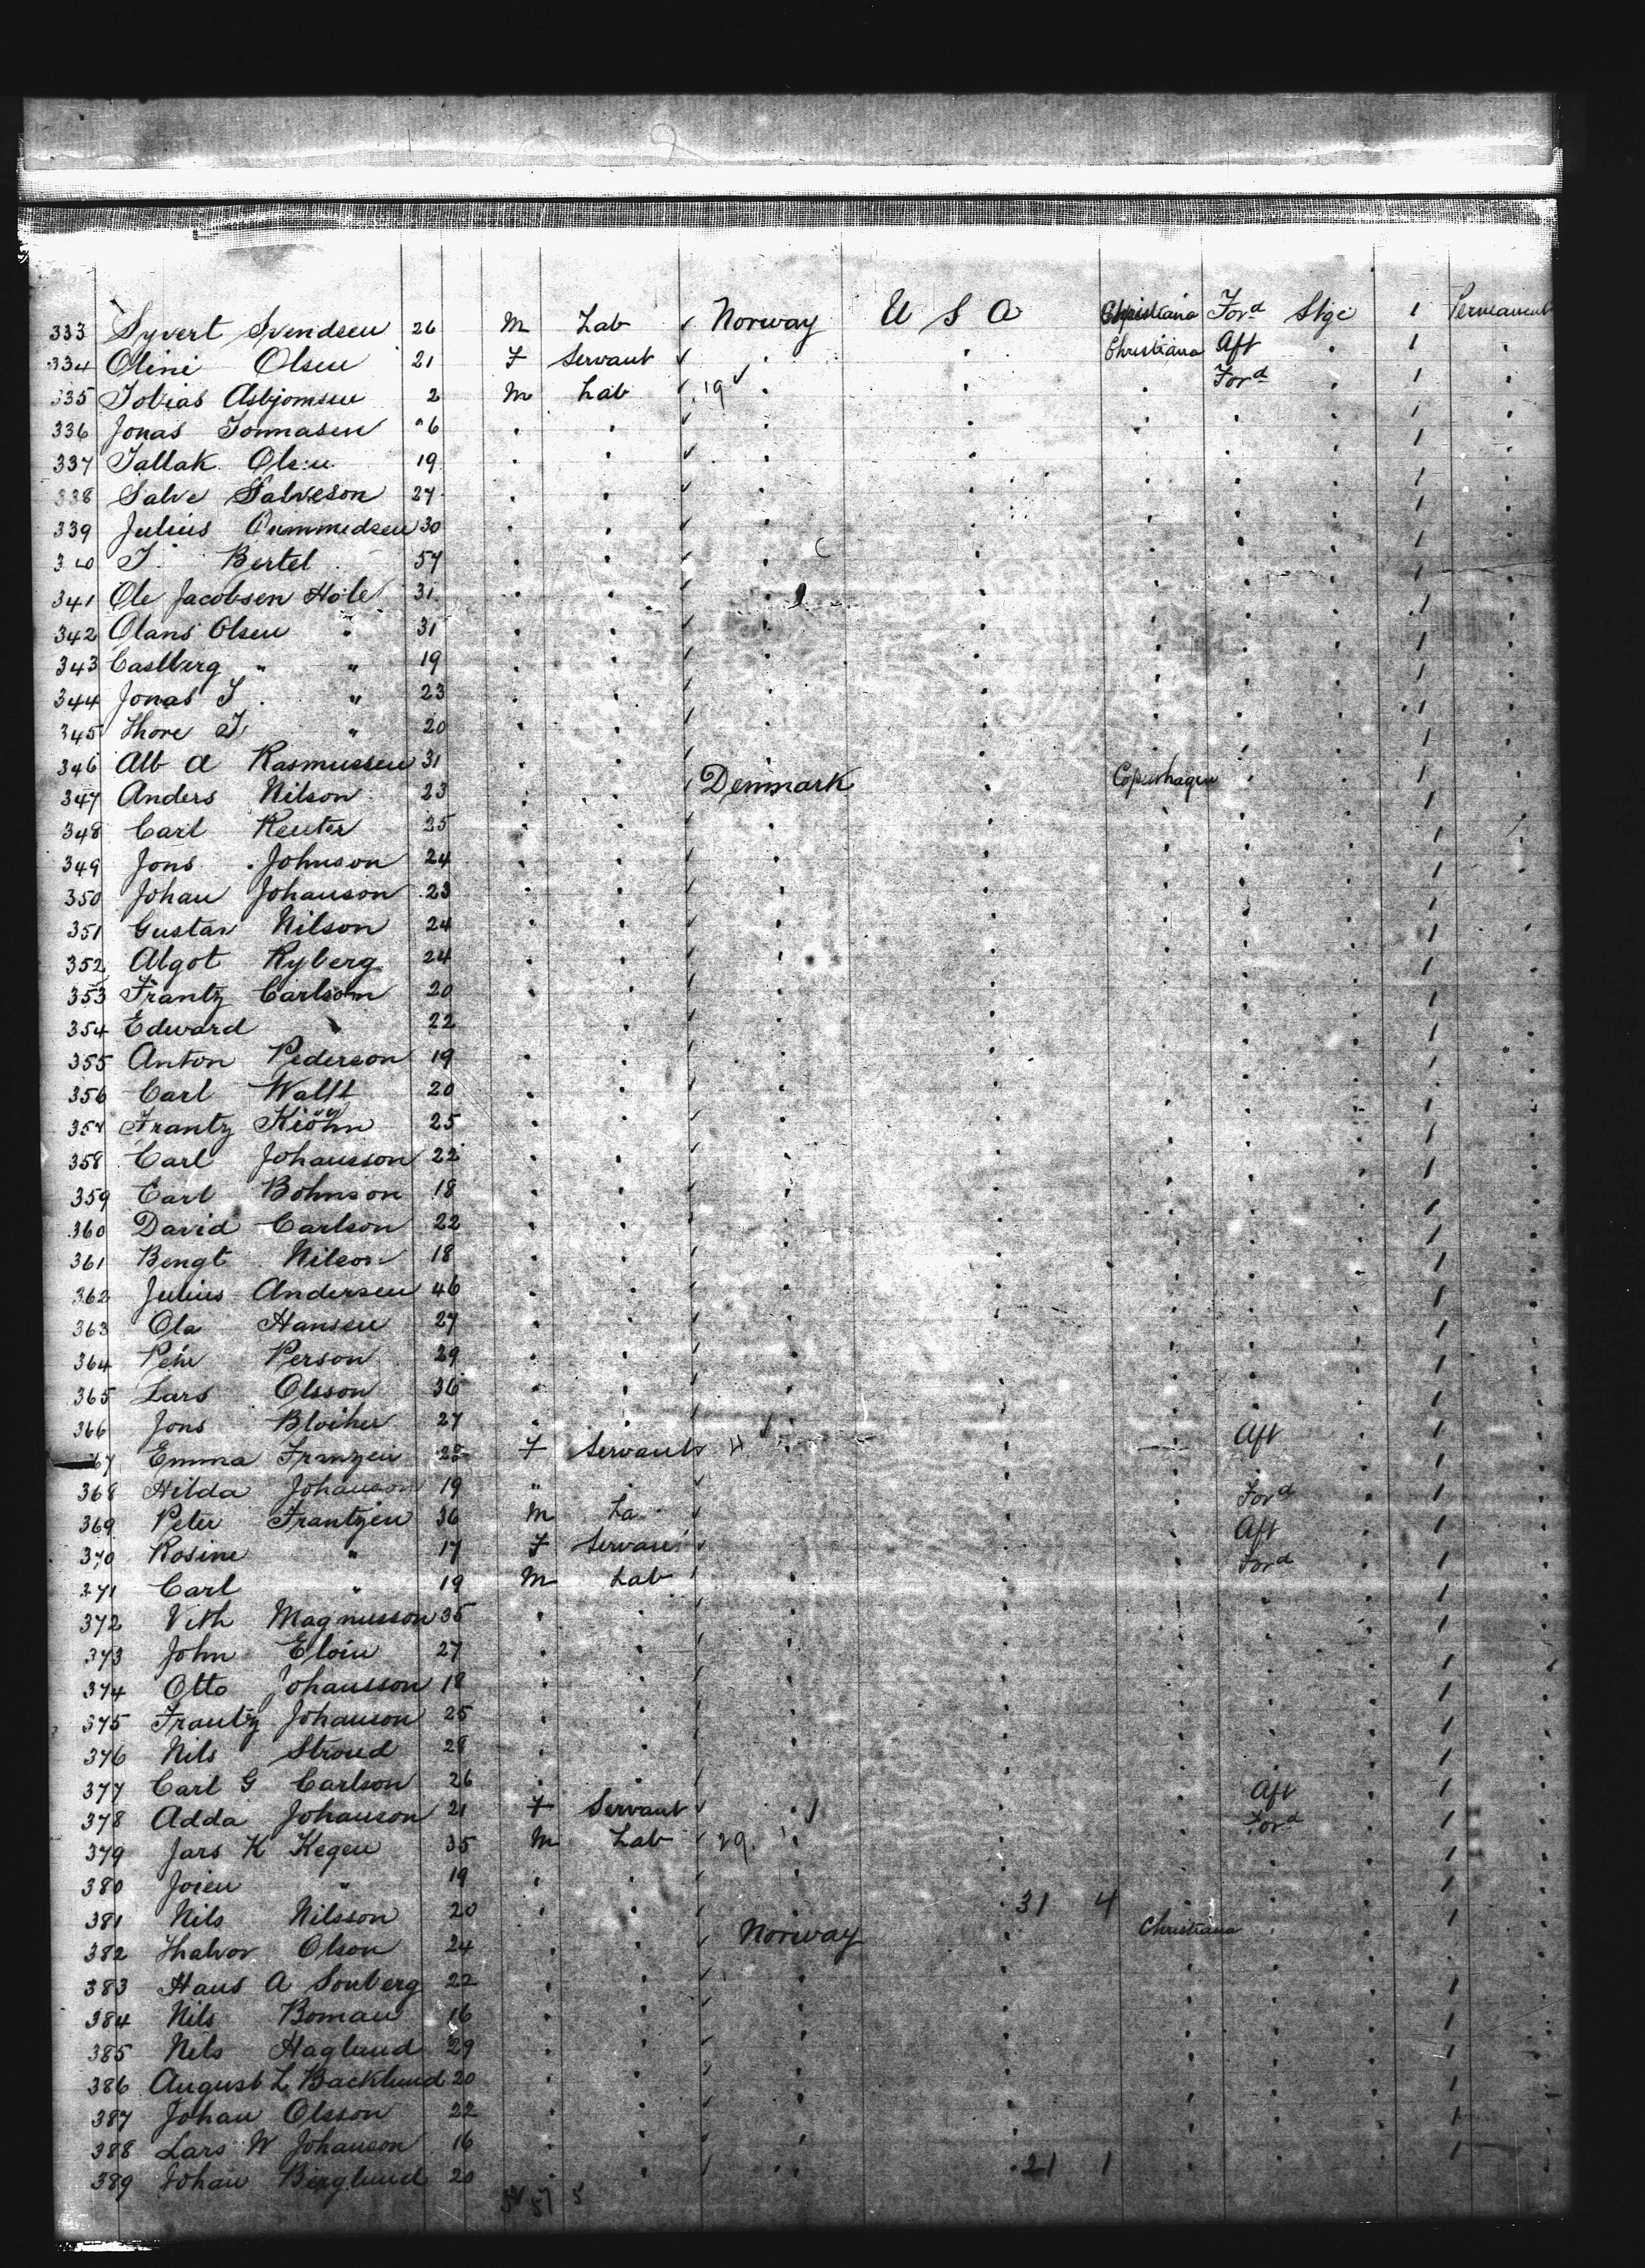 333 Syvert Svendsen 26 M Lab Norway U S A Christiana Ford Stge 1 Permanent
334 Olini Olsen 21 F Servant Christiana Aft 1
335 Tobias Asbjornsen 2 M Lab 19 Ford 1
336 Jonas Tonnasen 26 1
337 Tallak Olsen 19 1
338 Salve Salveson 27 1
339 Julius Oummedsen 30 1
340 T. Bertel 57 1
341 Ole Jacobsen Hole 31 1
342 Olans Olsen " 31 1
343 Castberg " " 19 1
344 Jonas T. " 23 1
345 Thore T. " 20 1
346 Alb A Rasmussen 31 1
347 Anders Nilson 23 Denmark Copenhagen 1
348 Carl Reuter 25 1
349 Jons Johnson 24 1
350 Johan Johanson 23 1
351 Gustav Nilson 24 1
352 Algot Ryberg 24 1
353 Frantz Carlsom 20 1
354 Edward 22 1
355 Anton Pederson 19 1
356 Carl Wallt 20 1
357 Frantz Kiöhn 25 1
358 Carl Johansson 22 1
359 Carl Bohnson 18 1
360 David Carlson 22 1
361 Bengt Nilson 18 1
362 Julius Andersen 46 1
363 Ola Hansen 27 1
364 Pehr Person 29 1
365 Lars Olsson 36 1
366 Jons Bloiher 27 1
67 Emma Franzen 28 F Servant Aft 1
368 Hilda Johanson 19 " 1
369 Peter Frantzen 36 M La Ford 1
370 Rosine " 17 F Servan Aft 1
371 Carl " 19 M Lab Ford 1
372 Vith Magnusson 35 1
373 John Eloin 27 1
374 Otto Johansson 18 1
375 Frantz Johanson 25 1
376 Nils Stroud 28 1
377 Carl G Carlson 26 1
378 Adda Johanson 21 F Servant Aft 1
379 Jars K Kegen 35 M Lab 29 Ford 1
380 Joien " 19 1
381 Nils Nilsson 20 31 4 1
382 Halvor Olson 24 Norway Christiana 1
383 Hans A Sonberg 22
384 Nils Boman 16 1
385 Nils Haglund 29 1
386 August L Backlund 20 1
387 Johan Olsson 22 1
388 Lars W Johanson 16 1
389 Johan Berglund 20 21 1 1
57 5